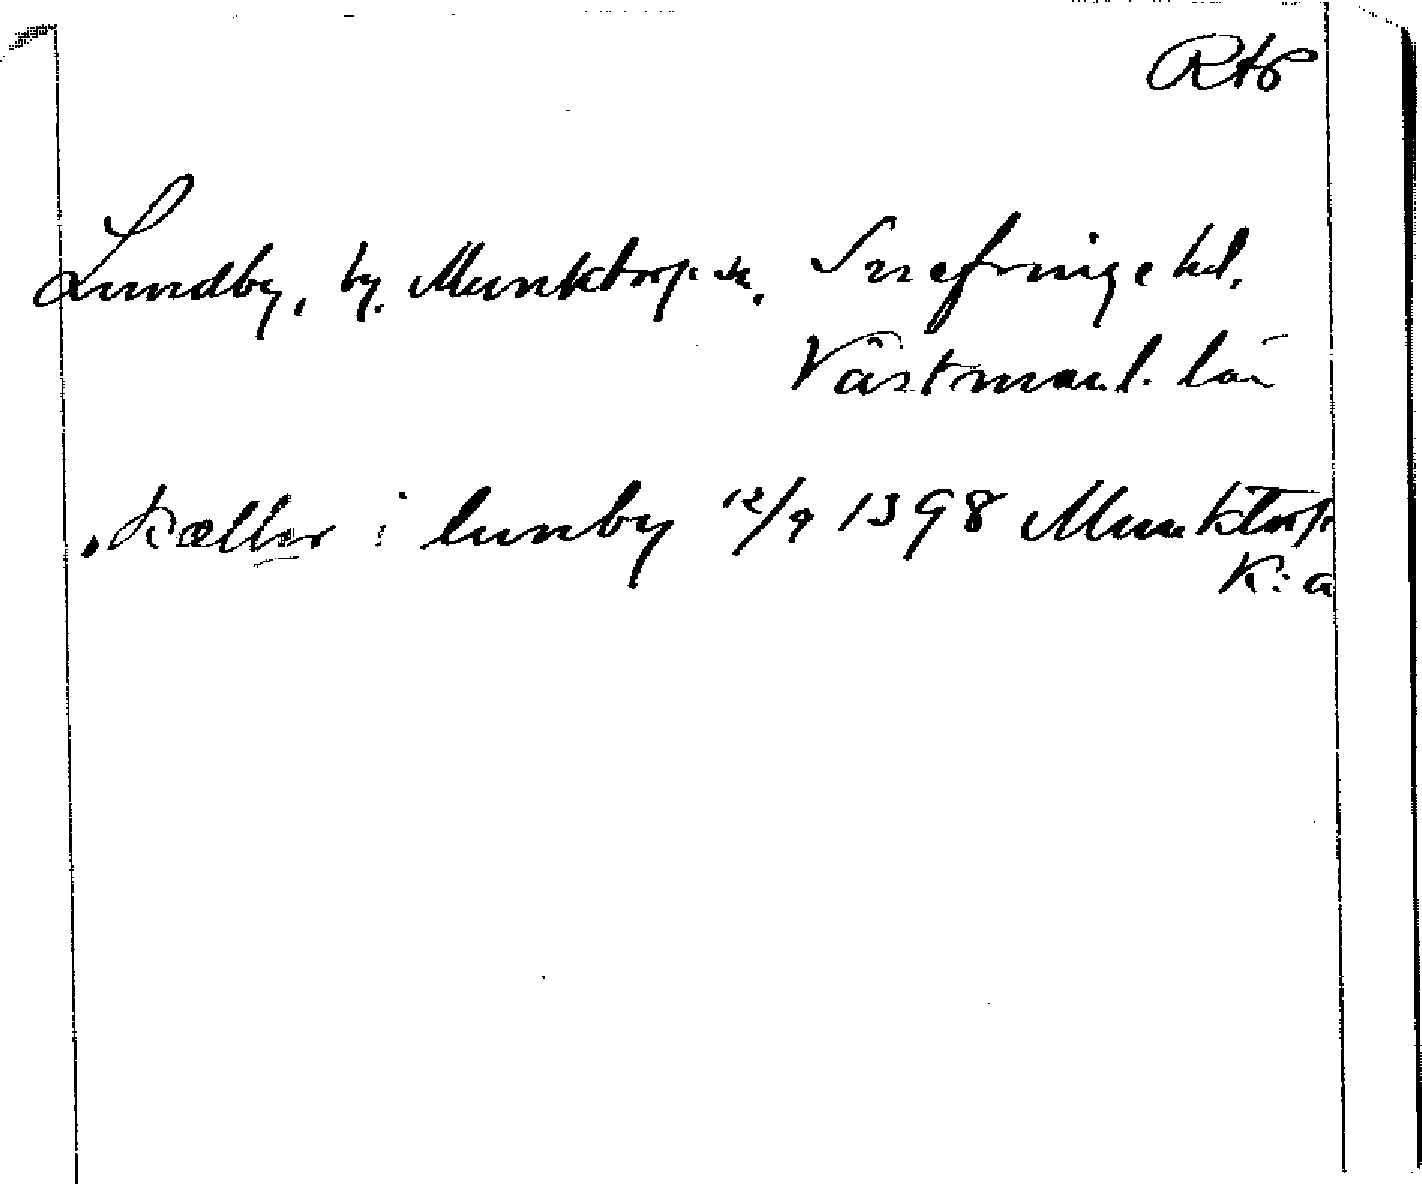 Lundby, by. Munktorp sn. Snefringe hd.
Västmanl. län
Kætler i lunby 12/9 1398 Munktorp
K:a